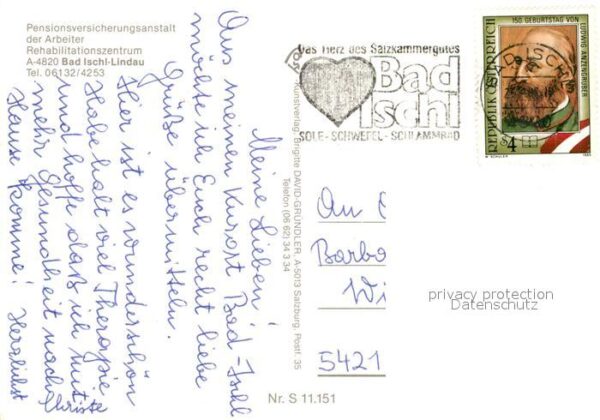 Pensionsversicherungsanstalt
der Arbeiter
Rehabilitationszentrum
A-4820 Bad Ischl-Lindau
Tel. 06132/4253
Meine Lieben!
Aus meinem Kurort Bad-Ischl
möchte ich Euch recht liebe
Grüße übermitteln.
Hier ist es wunderschön
Habe halt viel Therapie
und hoffe daß ich mit
mehr Gesundheit nach
Hause komme! Herzlichst
Christe
Kunstverlag Brigitte DAVID-GRÜNDLER, A-5013 Salzburg, Postf. 35
Telefon (06 62) 34 3 34
Das Herz des Salzkammergutes
Bad
Ischl
SOLE-SCHWEFEL-SCHLAMMBAD
150. GEBURTSTAG VON
LUDWIG ANZENGRUBER
REPUBLIK ÖSTERREICH
S 4
1989
An
Barba
Wi
5421
privacy protection
Datenschutz
Nr. S 11.151